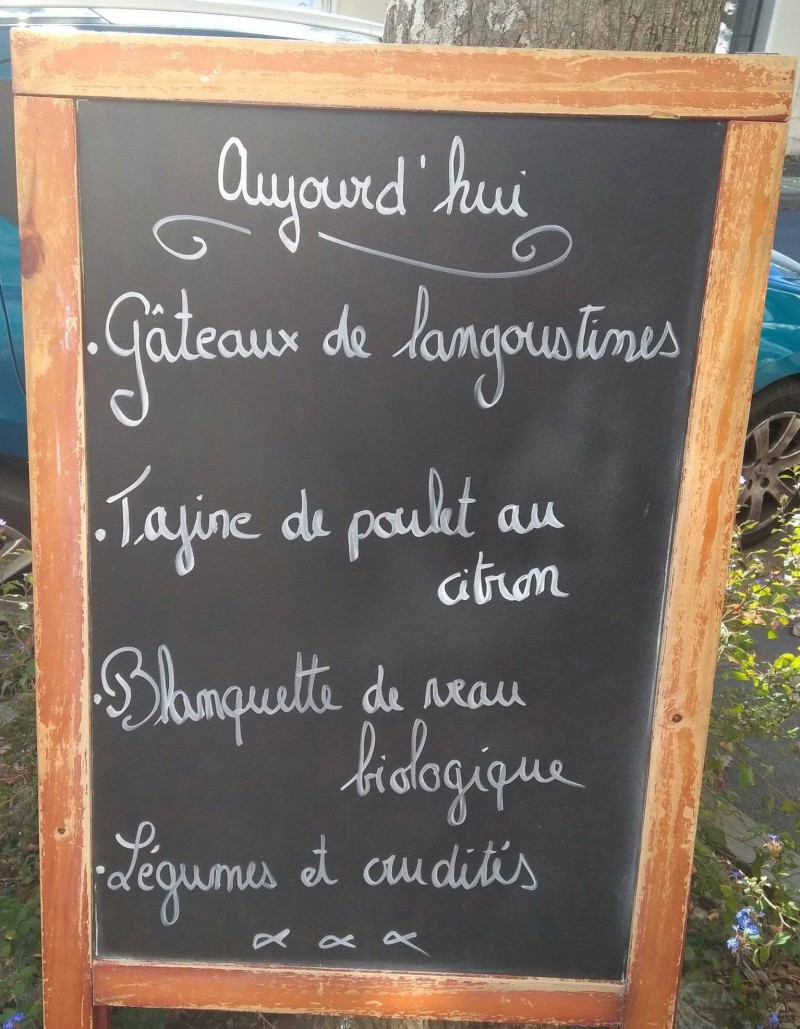 Aujourd'hui
. Gâteaux de langoustines
. Tajine de poulet au
citron
. Blanquette de veau
biologique
. Légumes et crudités